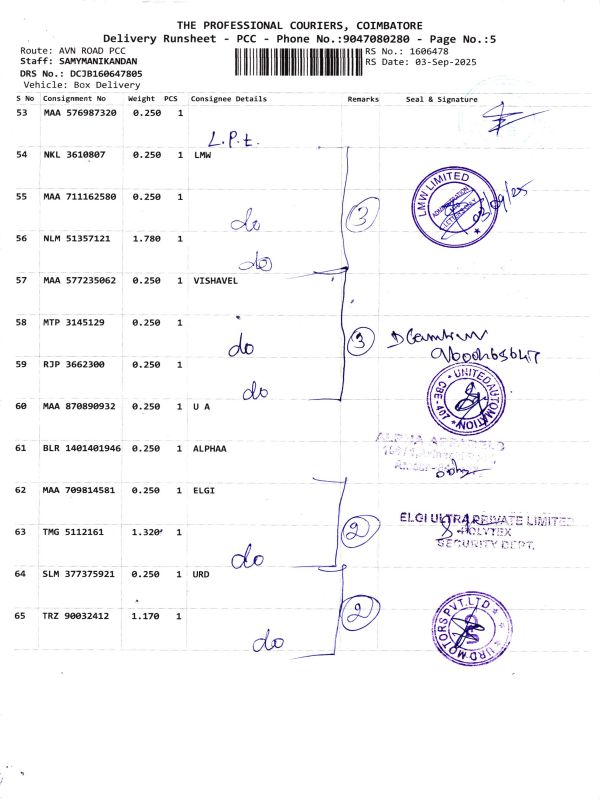 THE PROFESSIONAL COURIERS, COIMBATORE
Delivery Runsheet - PCC - Phone No.:9047080280 - Page No.:5
Route: AVN ROAD PCC
Staff: SAMYMANIKANDAN
DRS No.: DCJB160647805
Vehicle: Box Delivery
RS No.: 1606478
RS Date: 03-Sep-2025
S No Consignment No Weight PCS Consignee Details Remarks Seal & Signature
53 MAA 576987320 0.250 1
L.P.t.
54 NKL 3610807 0.250 1 LMW
55 MAA 711162580 0.250 1
do
3
LMW LIMITED
03/09/25
56 NLM 51357121 1.780 1
do
57 MAA 577235062 0.250 1 VISHAVEL
58 MTP 3145129 0.250 1
do
3
59 RJP 3662300 0.250 1
do
UNITED AUTOMATION
CBE-407
60 MAA 870890932 0.250 1 U A
61 BLR 1401401946 0.250 1 ALPHAA
62 MAA 709814581 0.250 1 ELGI
63 TMG 5112161 1.320 1
do
2
ELGI ULTRA PRIVATE LIMITED
POLYTEX
SECURITY DEPT.
64 SLM 377375921 0.250 1 URD
65 TRZ 90032412 1.170 1
do
2
URD MOTORS PVT.LTD